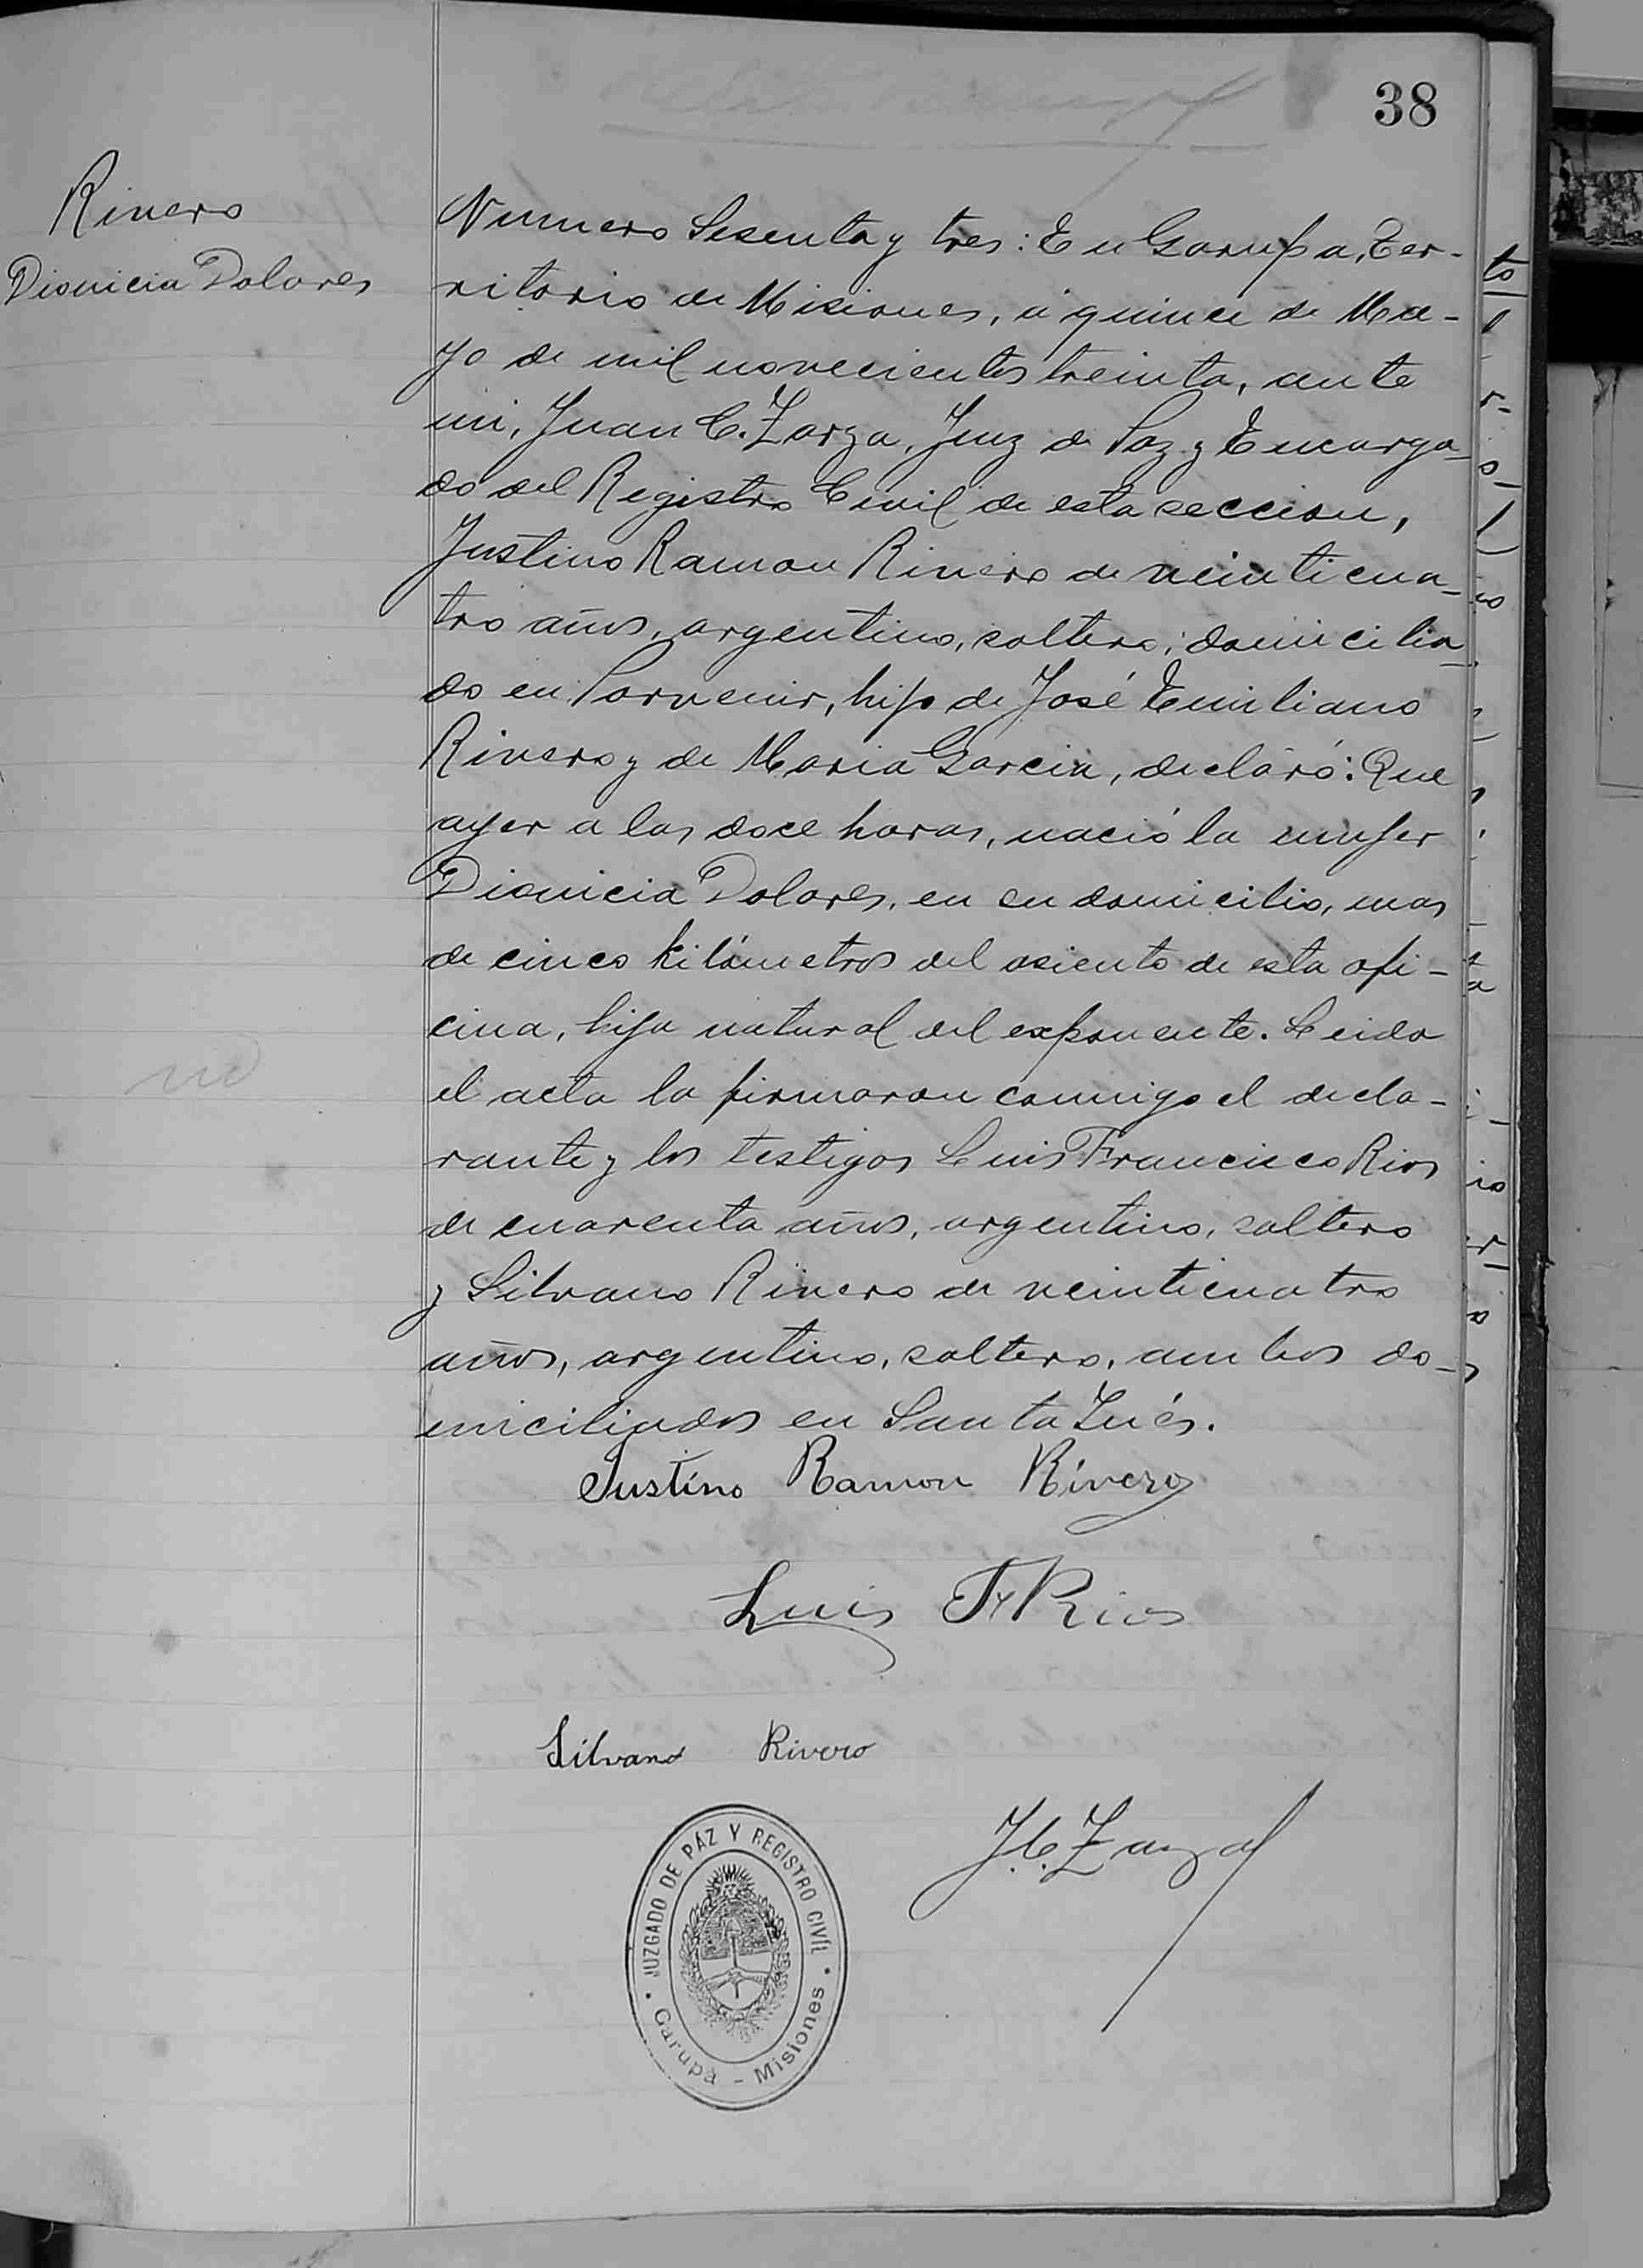 38
Rivero
Dionicia Dolores
Numero Sesenta y tres: En Garupa, Ter-
ritorio de Misiones, a quince de Ma-
yo de mil novecientos treinta, ante
mi, Juan C. Zarza, Juez de Paz y Encarga-
do del Registro Civil de esta seccion,
Justino Ramon Rivero de veinticua-
tro años, argentino, soltero, domicilia-
do en Porvenir, hijo de José Emiliano
Rivero y de Maria Garcia, declaró: Que
ayer a las doce horas, nació la mujer
Dionicia Dolores, en su domicilio, mas
de cinco kilómetros del asiento de esta ofi-
cina, hija natural del exponente. Leida
el acta la firmaron conmigo el decla-
rante y los testigos Luis Francisco Rios
de cuarenta años, argentino, soltero
y Silvano Rivero de veinticuatro
años, argentino, soltero, ambos do-
miciliados en Santa Inés.
Justino Ramon Rivero
Luis F Rios
Silvano Rivero
J. C. Zarza
JUZGADO DE PÁZ Y REGISTRO CIVÍL
Garupá - Misiones